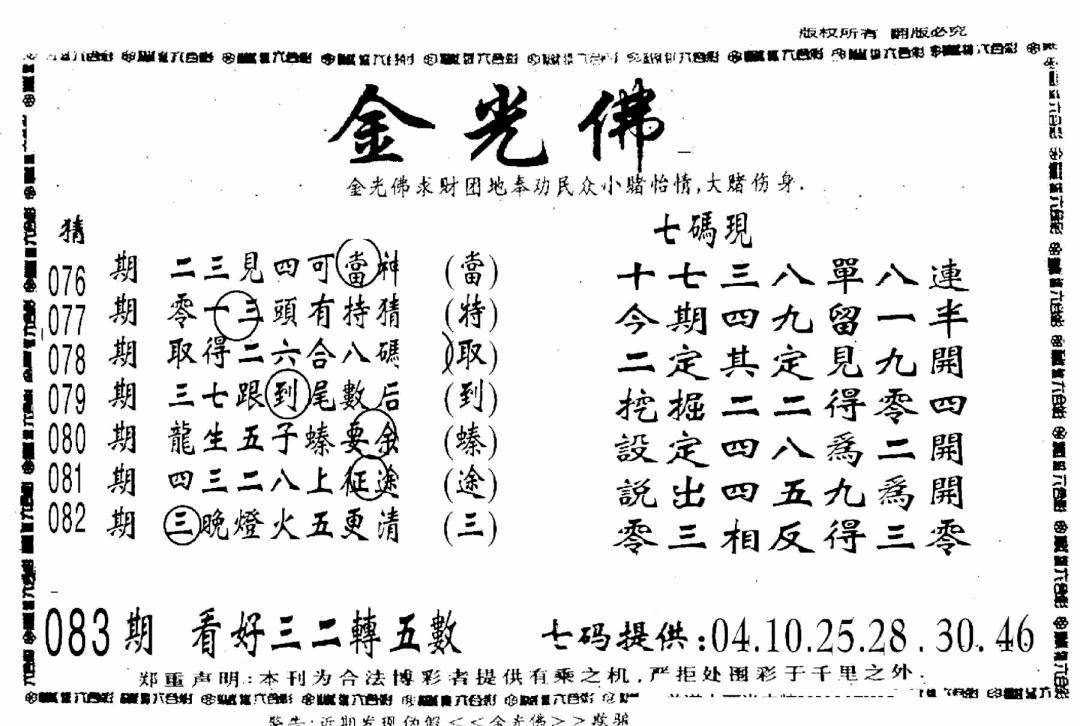 版权所有 翻版必究
金光佛
金光佛求财团地奉劝民众小赌怡情,大赌伤身.
猜
076期 二三見四可當神 (當)
077期 零十三頭有持猜 (特)
078期 取得二六合八碼 (取)
079期 三七跟到尾數后 (到)
080期 龍生五子螓要余 (螓)
081期 四三二八上征途 (途)
082期 三晚燈火五更清 (三)
七碼現
十七三八單八連
今期四九留一半
二定其定見九開
挖掘二二得零四
設定四八爲二開
説出四五九爲開
零三相反得三零
083期 看好三二轉五數
七码提供:04.10.25.28.30.46
郑重声明:本刊为合法博彩者提供有乘之机,严拒处围彩于千里之外.
警告:近期发现伪假<<金光佛>>欺骗